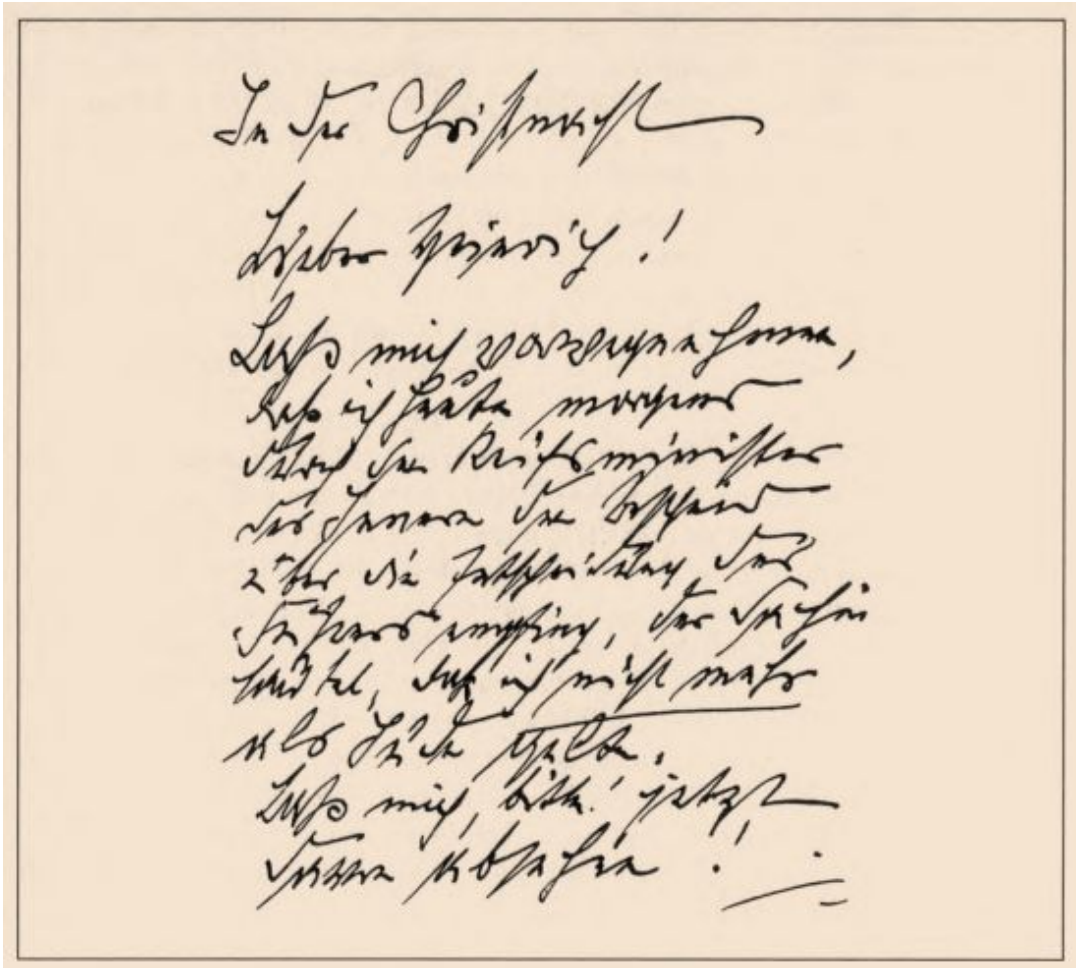 In der Christnacht
Lieber Heinrich!
Laß mich vorwegnehmen,
daß ich heute morgens
durch den Reichsminister
des Innern den Bescheid
über die Entscheidung des
Führers empfing, der dahin
lautet, daß ich nicht mehr
als Jude gelte.
Laß mich, bitte! jetzt
davon absehen!